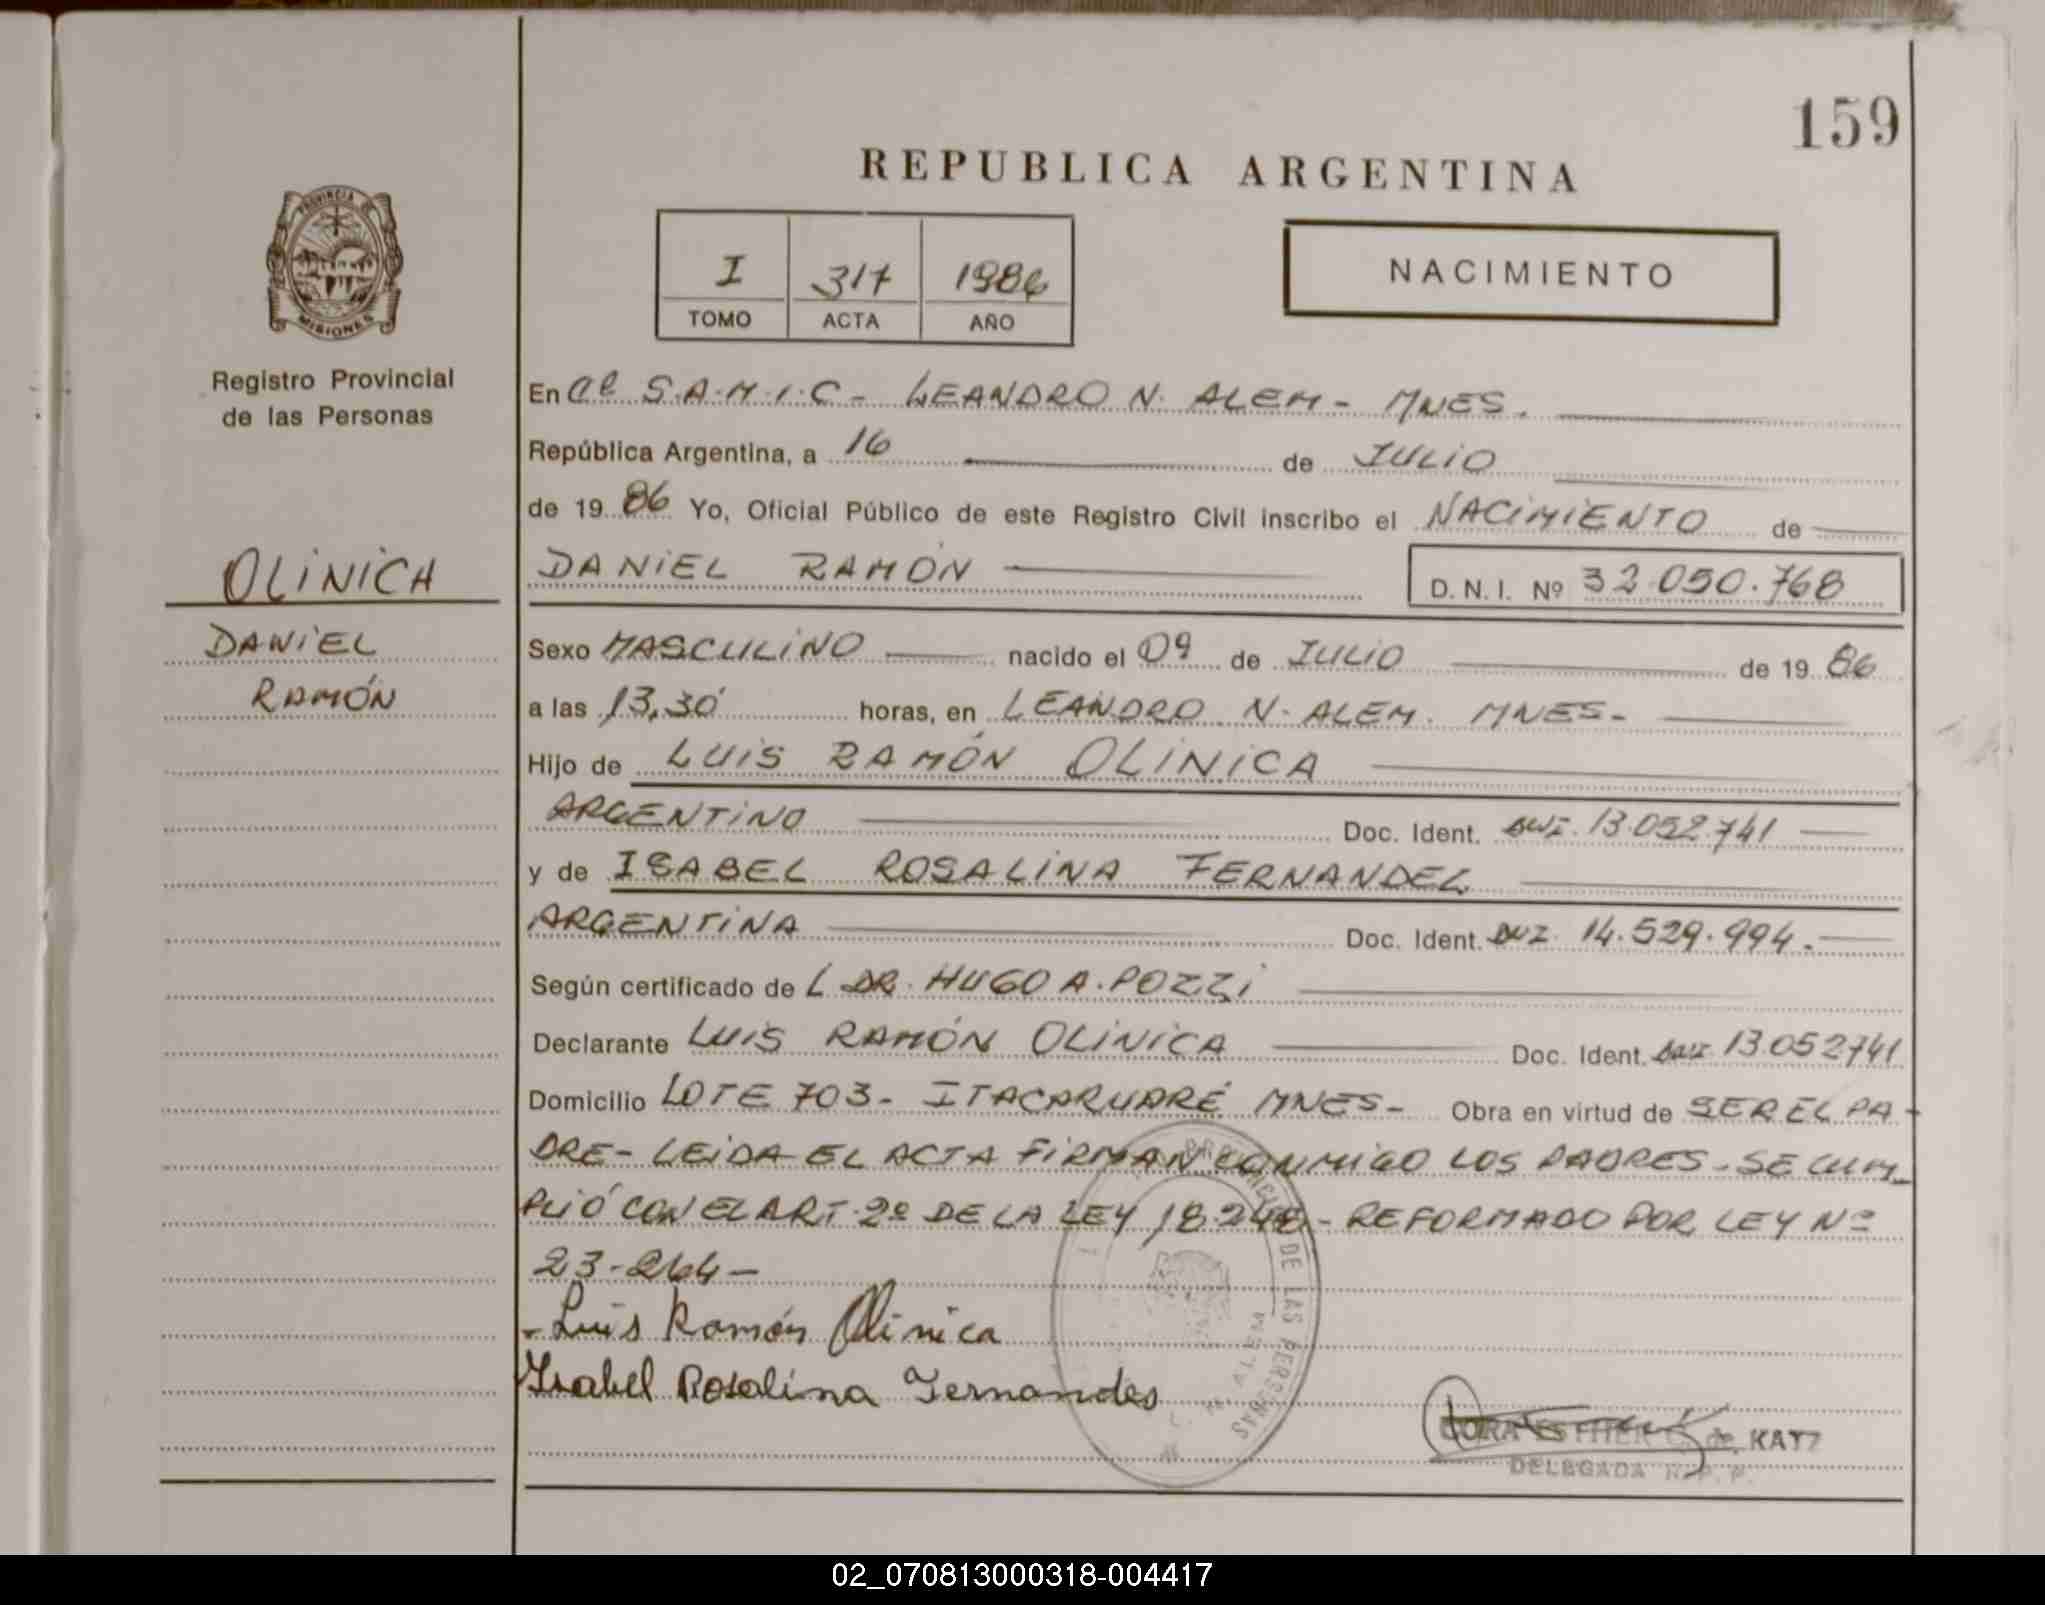 159
REPUBLICA ARGENTINA
PROVINCIA DE
MISIONES
I 317 1986
TOMO ACTA AÑO
NACIMIENTO
Registro Provincial
de las Personas
En el S.A.M.I.C - LEANDRO N. ALEM - MNES.
República Argentina, a 16 de JULIO
de 1986 Yo, Oficial Público de este Registro Civil inscribo el NACIMIENTO de
OLINICA
DANIEL RAMÓN D. N. I. Nº 32.050.768
DANIEL
RAMÓN
Sexo MASCULINO nacido el 09 de JULIO de 1986
a las 13,30 horas, en LEANDRO N. ALEM. MNES-
Hijo de LUIS RAMÓN OLINICA
ARGENTINO Doc. Ident. DNI. 13.052.741
y de ISABEL ROSALINA FERNANDEZ
ARGENTINA Doc. Ident. DNI. 14.529.994.-
Según certificado de L DR. HUGO A. POZZI
Declarante LUIS RAMÓN OLINICA Doc. Ident. DNI 13.052741
Domicilio LOTE 703- ITACARUARÉ MNES- Obra en virtud de SER EL PA-
DRE- LEIDA EL ACTA FIRMAN CONMIGO LOS PADRES- SE CUM_
PLIÓ CON EL ART. 2º DE LA LEY 18.248- REFORMADO POR LEY Nº
23-264-
- Luis Ramón Olinica
Isabel Rosalina Fernandes
DE LAS PERSONAS
N. ALEM
ESTHER C. de KATZ
DELEGADA R. P. P.
02_070813000318-004417